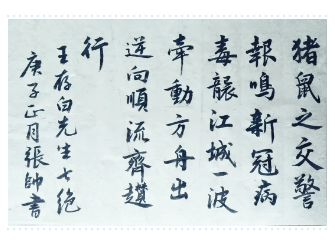 猪鼠之交警
報鳴新冠病
毒襲江城一波
牽動方舟出
逆向順流齊趲
行
王存白先生七绝
庚子正月張帥書